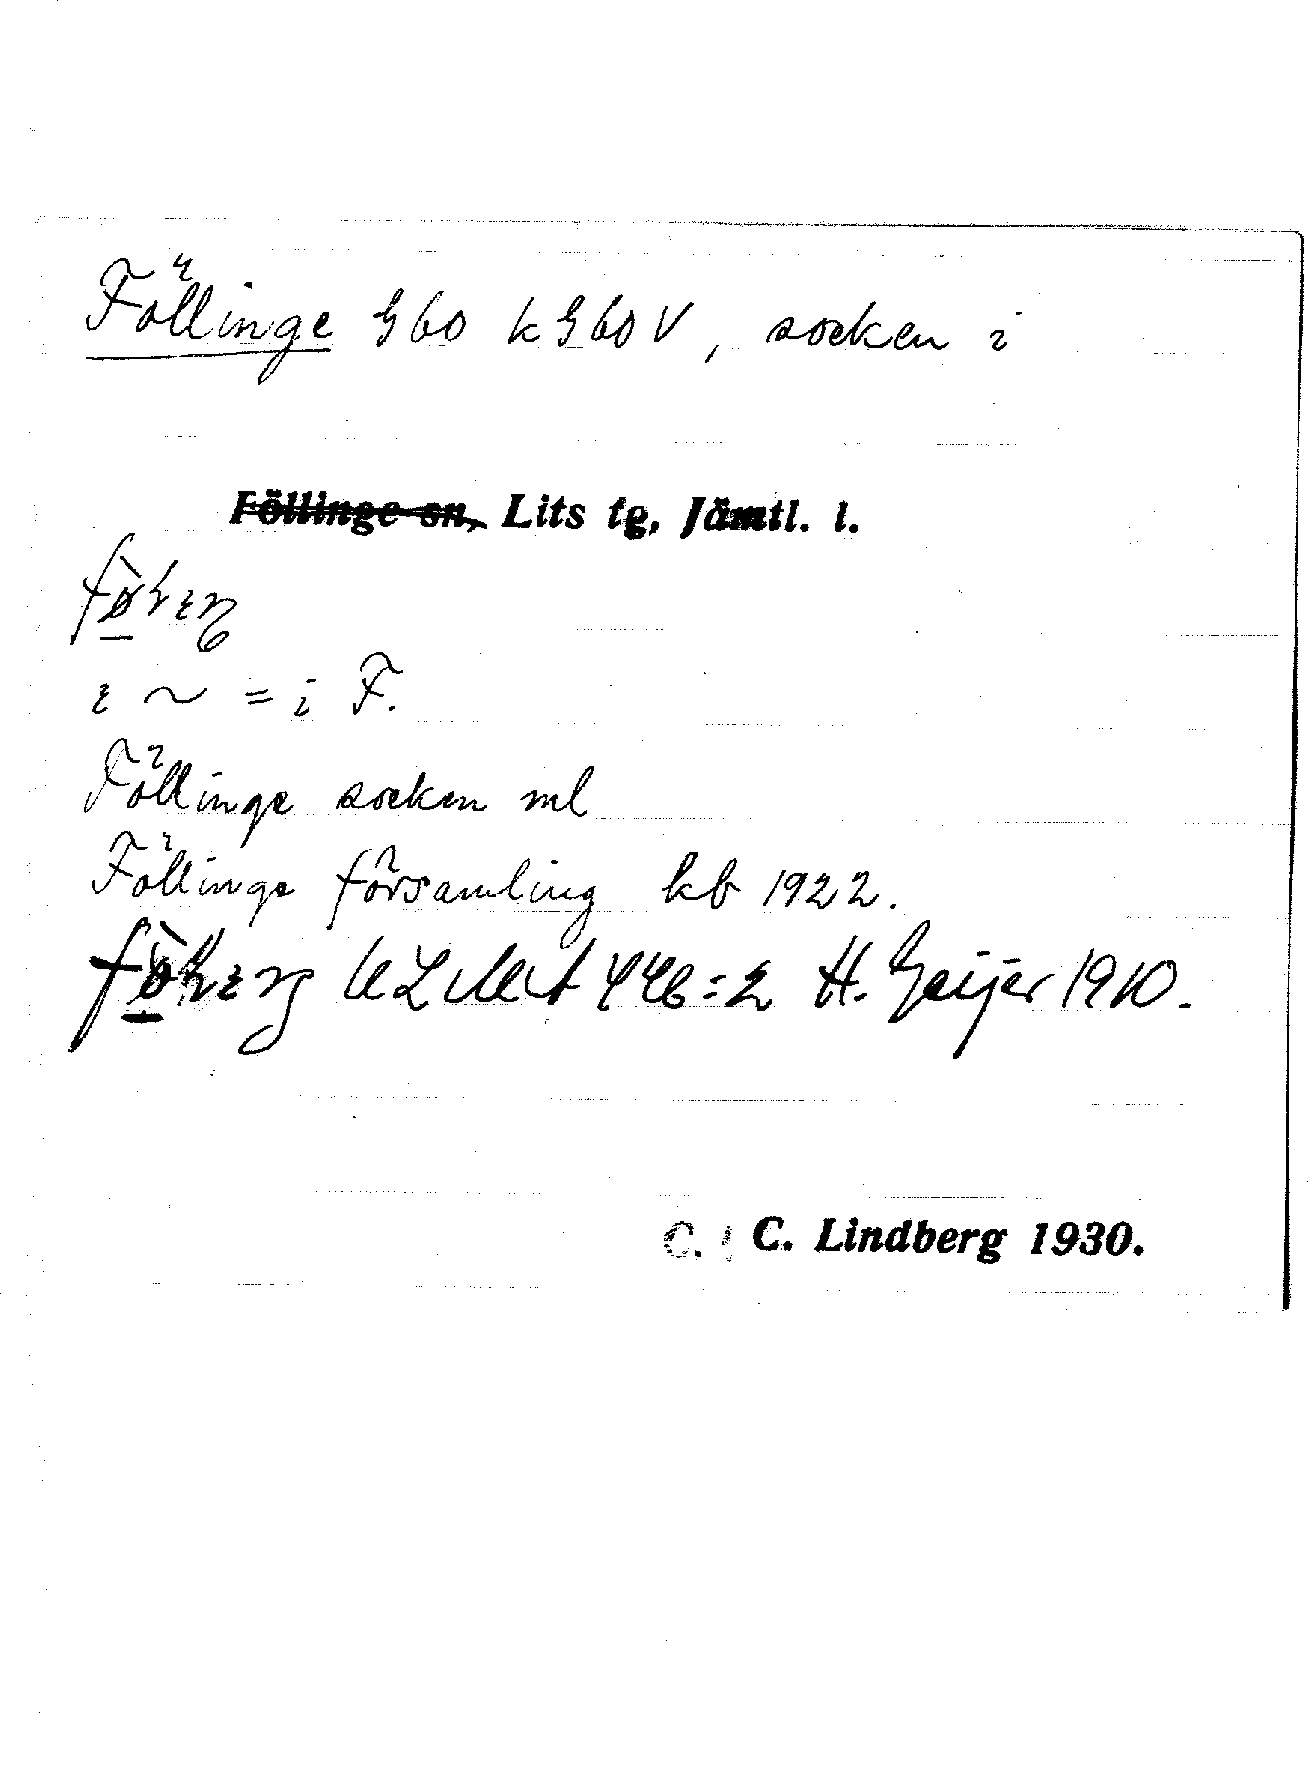 Föllinge G60 k G60 V, socken i
Föllinge sn, Lits tg, Jämtl. l.
ı ~ = i F.
Föllinge socken ml
Föllinge församling kb 1922.
ULMA 446:2 H. Geijer 1910.
C. C. Lindberg 1930.